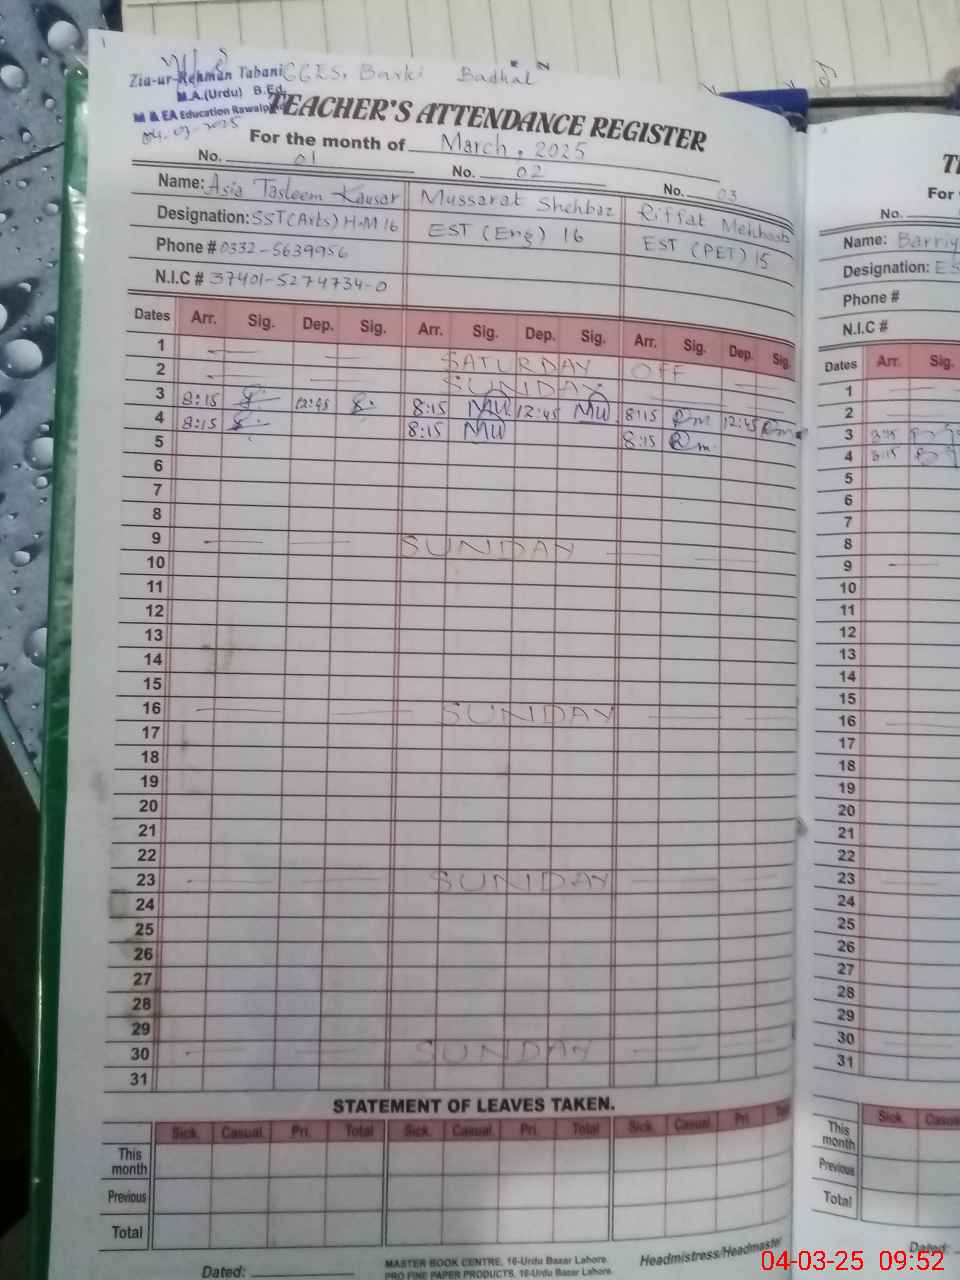 Zia-ur-Rehman Tabani GGES, Barki Badhal
M.A.(Urdu) B.Ed
M & EA Education Rawalpindi
04-03-2025
TEACHER'S ATTENDANCE REGISTER
For the month of March, 2025
No. 01 No. 02 No. 03
Name: Asia Tasleem Kausar Mussarat Shehbaz Riffat Mehboob
Designation: SST(Arts) H.M 16 EST (Eng) 16 EST (PET) 15
Phone # 0332-5639956
N.I.C # 37401-5274734-0
Dates Arr. Sig. Dep. Sig. Arr. Sig. Dep. Sig. Arr. Sig. Dep. Sig.
1 SATURDAY OFF
2 SUNDAY
3 8:15 12:45 8:15 MU 12:45 MU 8:15 Rm 12:45 Rm
4 8:15 8:15 MU 8:15 Rm
5
6
7
8
9 SUNDAY
10
11
12
13
14
15
16 SUNDAY
17
18
19
20
21
22
23 SUNDAY
24
25
26
27
28
29
30 SUNDAY
31
STATEMENT OF LEAVES TAKEN.
Sick. Casual. Pri. Total Sick. Casual. Pri. Total Sick. Casual. Pri.
This month
Previous
Total
Dated:
MASTER BOOK CENTRE, 16-Urdu Bazar Lahore.
PRO FINE PAPER PRODUCTS, 16-Urdu Bazar Lahore.
Headmistress/Headmaster
For
No.
Name: Barriy
Designation: ES
Phone #
N.I.C #
Dates Arr. Sig.
1
2
3
4 8:15
5
6
7
8
9
10
11
12
13
14
15
16
17
18
19
20
21
22
23
24
25
26
27
28
29
30
31
Sick.
This month
Previous
Total
Dated:
04-03-25 09:52